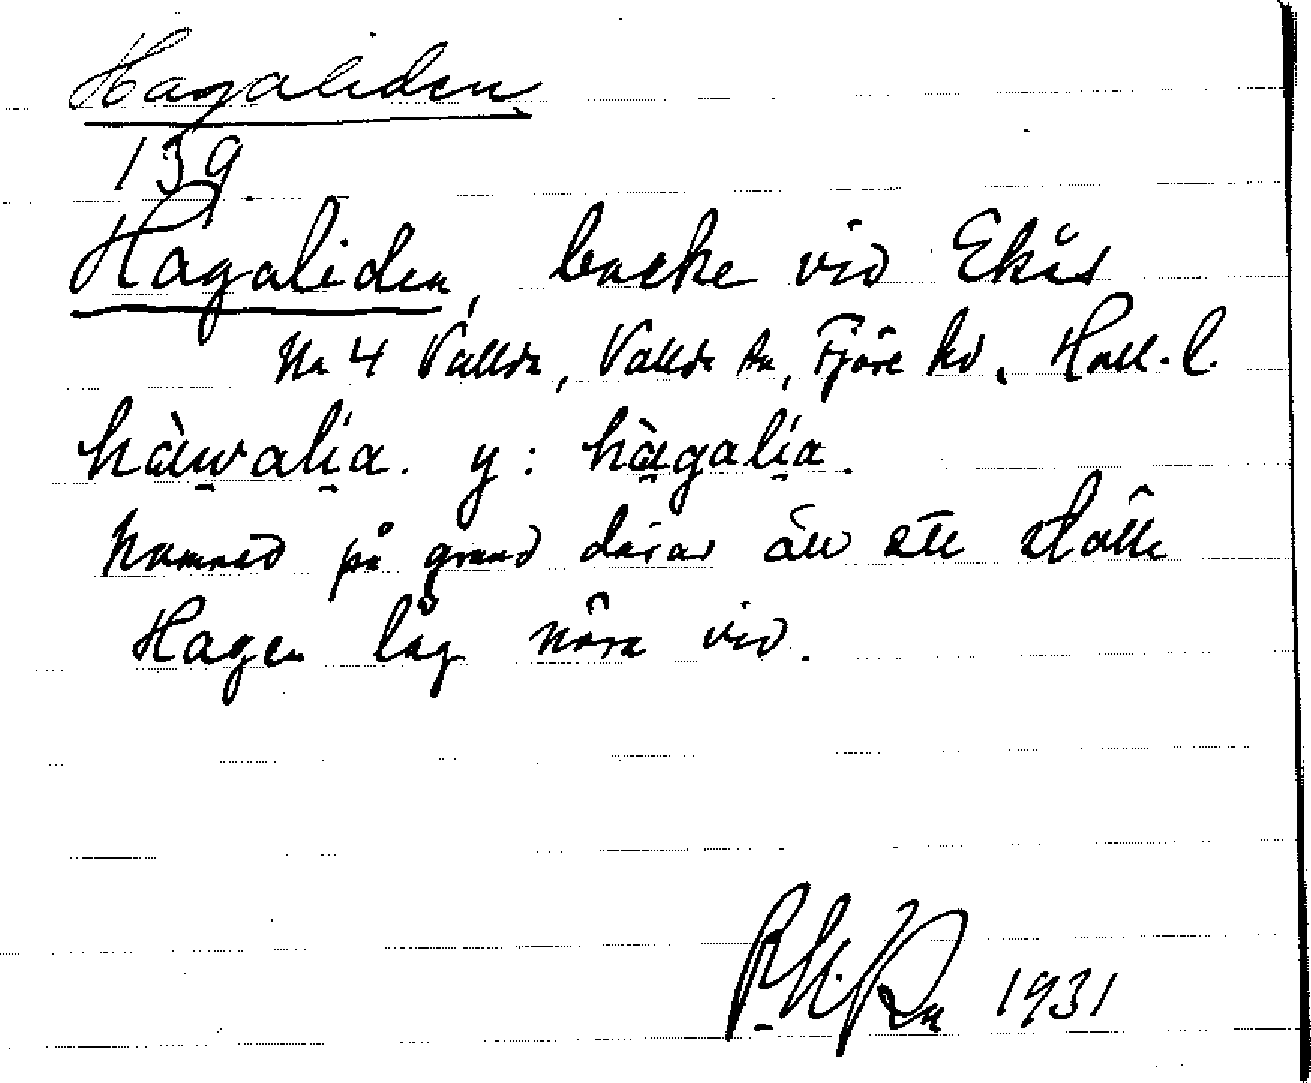 Hagaliden
139
Hagaliden, backe vid Ekås
Na 4 Vallda, Vallda sn, Fjäre hd, Hall. l.
hàwalia. y: hàgalia.
Namned på grund därav att ett ställe
Hagen låg nära vid.
1931